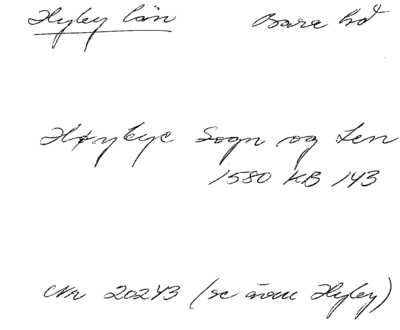 Hyley län Bara hd
Høyleye Sogn og Len
1580 KB 143
Nr 20243 (se även Hyley)